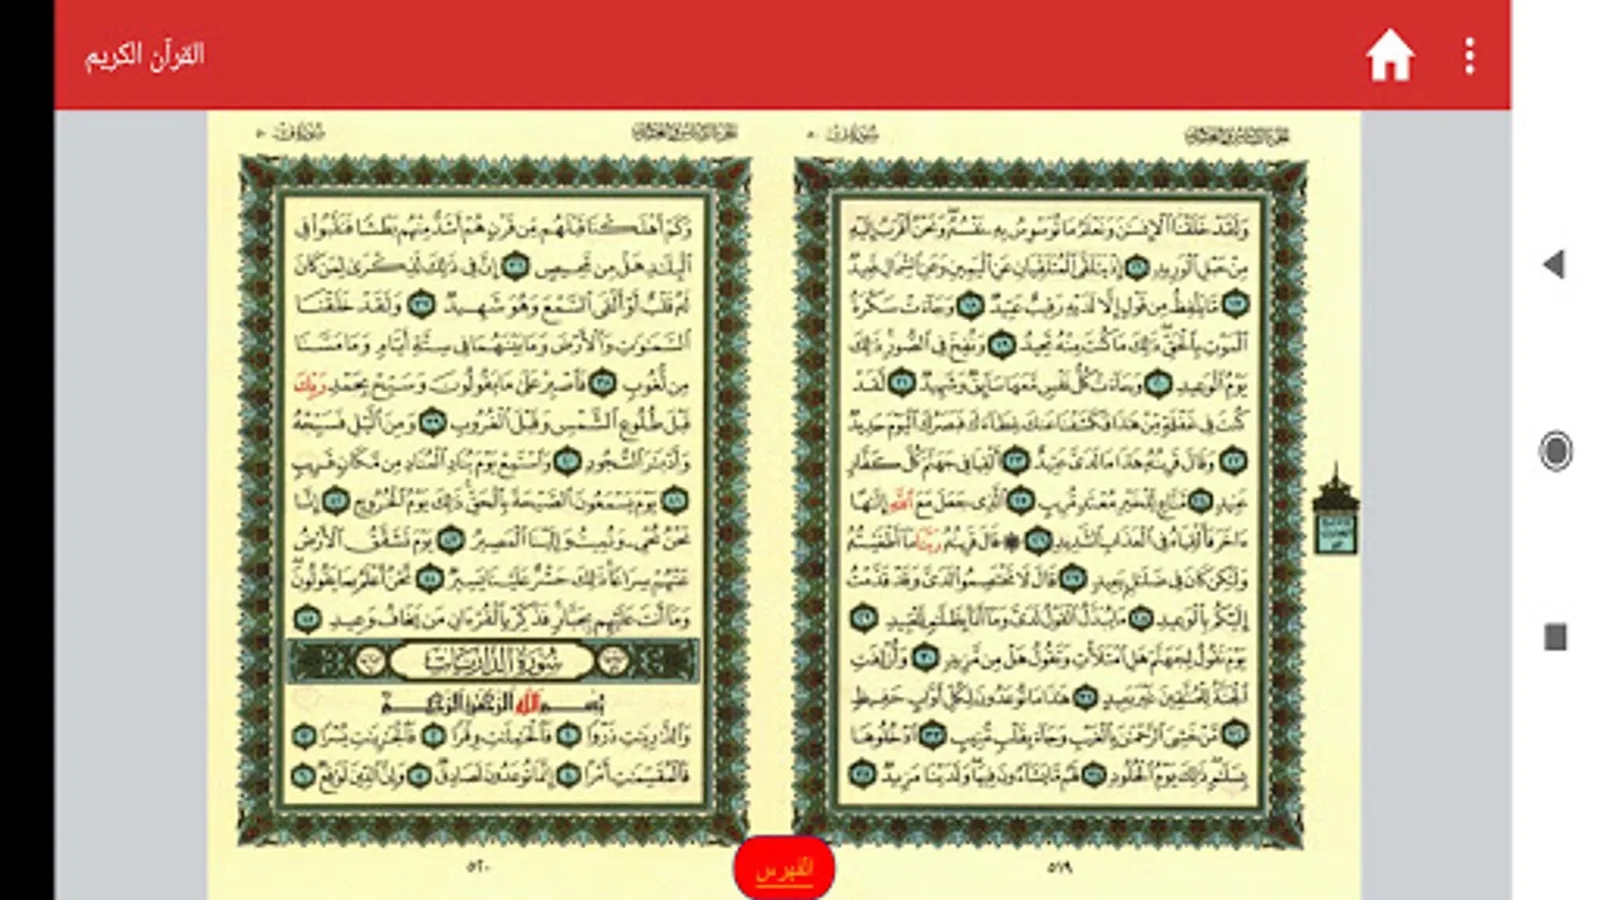 القرآن الكريم
الجزء السادس والعشرون سورة ق ٥٠
وَلَقَدْ خَلَقْنَا ٱلْإِنسَٰنَ وَنَعْلَمُ مَا تُوَسْوِسُ بِهِۦ نَفْسُهُۥ وَنَحْنُ أَقْرَبُ إِلَيْهِ
مِنْ حَبْلِ ٱلْوَرِيدِ ١٦ إِذْ يَتَلَقَّى ٱلْمُتَلَقِّيَانِ عَنِ ٱلْيَمِينِ وَعَنِ ٱلشِّمَالِ قَعِيدٌ
١٧ مَّا يَلْفِظُ مِن قَوْلٍ إِلَّا لَدَيْهِ رَقِيبٌ عَتِيدٌ ١٨ وَجَآءَتْ سَكْرَةُ
ٱلْمَوْتِ بِٱلْحَقِّ ذَٰلِكَ مَا كُنتَ مِنْهُ تَحِيدُ ١٩ وَنُفِخَ فِى ٱلصُّورِ ذَٰلِكَ
يَوْمُ ٱلْوَعِيدِ ٢٠ وَجَآءَتْ كُلُّ نَفْسٍ مَّعَهَا سَآئِقٌ وَشَهِيدٌ ٢١ لَّقَدْ
كُنتَ فِى غَفْلَةٍ مِّنْ هَٰذَا فَكَشَفْنَا عَنكَ غِطَآءَكَ فَبَصَرُكَ ٱلْيَوْمَ حَدِيدٌ
٢٢ وَقَالَ قَرِينُهُۥ هَٰذَا مَا لَدَىَّ عَتِيدٌ ٢٣ أَلْقِيَا فِى جَهَنَّمَ كُلَّ كَفَّارٍ
عَنِيدٍ ٢٤ مَّنَّاعٍ لِّلْخَيْرِ مُعْتَدٍ مُّرِيبٍ ٢٥ ٱلَّذِى جَعَلَ مَعَ ٱللَّهِ إِلَٰهًا
ءَاخَرَ فَأَلْقِيَاهُ فِى ٱلْعَذَابِ ٱلشَّدِيدِ ٢٦ ۞ قَالَ قَرِينُهُۥ رَبَّنَا مَآ أَطْغَيْتُهُۥ
وَلَٰكِن كَانَ فِى ضَلَٰلٍۭ بَعِيدٍ ٢٧ قَالَ لَا تَخْتَصِمُوا۟ لَدَىَّ وَقَدْ قَدَّمْتُ
إِلَيْكُم بِٱلْوَعِيدِ ٢٨ مَا يُبَدَّلُ ٱلْقَوْلُ لَدَىَّ وَمَآ أَنَا۠ بِظَلَّٰمٍ لِّلْعَبِيدِ ٢٩
يَوْمَ نَقُولُ لِجَهَنَّمَ هَلِ ٱمْتَلَأْتِ وَتَقُولُ هَلْ مِن مَّزِيدٍ ٣٠ وَأُزْلِفَتِ
ٱلْجَنَّةُ لِلْمُتَّقِينَ غَيْرَ بَعِيدٍ ٣١ هَٰذَا مَا تُوعَدُونَ لِكُلِّ أَوَّابٍ حَفِيظٍ
٣٢ مَّنْ خَشِىَ ٱلرَّحْمَٰنَ بِٱلْغَيْبِ وَجَآءَ بِقَلْبٍ مُّنِيبٍ ٣٣ ٱدْخُلُوهَا
بِسَلَٰمٍ ذَٰلِكَ يَوْمُ ٱلْخُلُودِ ٣٤ لَهُم مَّا يَشَآءُونَ فِيهَا وَلَدَيْنَا مَزِيدٌ ٣٥
٥١٩
الجزء السادس والعشرون سورة ق ٥٠
وَكَمْ أَهْلَكْنَا قَبْلَهُم مِّن قَرْنٍ هُمْ أَشَدُّ مِنْهُم بَطْشًا فَنَقَّبُوا۟ فِى
ٱلْبِلَٰدِ هَلْ مِن مَّحِيصٍ ٣٦ إِنَّ فِى ذَٰلِكَ لَذِكْرَىٰ لِمَن كَانَ
لَهُۥ قَلْبٌ أَوْ أَلْقَى ٱلسَّمْعَ وَهُوَ شَهِيدٌ ٣٧ وَلَقَدْ خَلَقْنَا
ٱلسَّمَٰوَٰتِ وَٱلْأَرْضَ وَمَا بَيْنَهُمَا فِى سِتَّةِ أَيَّامٍ وَمَا مَسَّنَا
مِن لُّغُوبٍ ٣٨ فَٱصْبِرْ عَلَىٰ مَا يَقُولُونَ وَسَبِّحْ بِحَمْدِ رَبِّكَ
قَبْلَ طُلُوعِ ٱلشَّمْسِ وَقَبْلَ ٱلْغُرُوبِ ٣٩ وَمِنَ ٱلَّيْلِ فَسَبِّحْهُ
وَأَدْبَٰرَ ٱلسُّجُودِ ٤٠ وَٱسْتَمِعْ يَوْمَ يُنَادِ ٱلْمُنَادِ مِن مَّكَانٍ قَرِيبٍ
٤١ يَوْمَ يَسْمَعُونَ ٱلصَّيْحَةَ بِٱلْحَقِّ ذَٰلِكَ يَوْمُ ٱلْخُرُوجِ ٤٢ إِنَّا
نَحْنُ نُحْىِۦ وَنُمِيتُ وَإِلَيْنَا ٱلْمَصِيرُ ٤٣ يَوْمَ تَشَقَّقُ ٱلْأَرْضُ
عَنْهُمْ سِرَاعًا ذَٰلِكَ حَشْرٌ عَلَيْنَا يَسِيرٌ ٤٤ نَّحْنُ أَعْلَمُ بِمَا يَقُولُونَ
وَمَآ أَنتَ عَلَيْهِم بِجَبَّارٍ فَذَكِّرْ بِٱلْقُرْءَانِ مَن يَخَافُ وَعِيدِ ٤٥
سُورَةُ الذَّارِيَاتِ
بِسْمِ ٱللَّهِ ٱلرَّحْمَٰنِ ٱلرَّحِيمِ
وَٱلذَّٰرِيَٰتِ ذَرْوًا ١ فَٱلْحَٰمِلَٰتِ وِقْرًا ٢ فَٱلْجَٰرِيَٰتِ يُسْرًا ٣
فَٱلْمُقَسِّمَٰتِ أَمْرًا ٤ إِنَّمَا تُوعَدُونَ لَصَادِقٌ ٥ وَإِنَّ ٱلدِّينَ لَوَٰقِعٌ ٦
٥٢٠
الفهرس